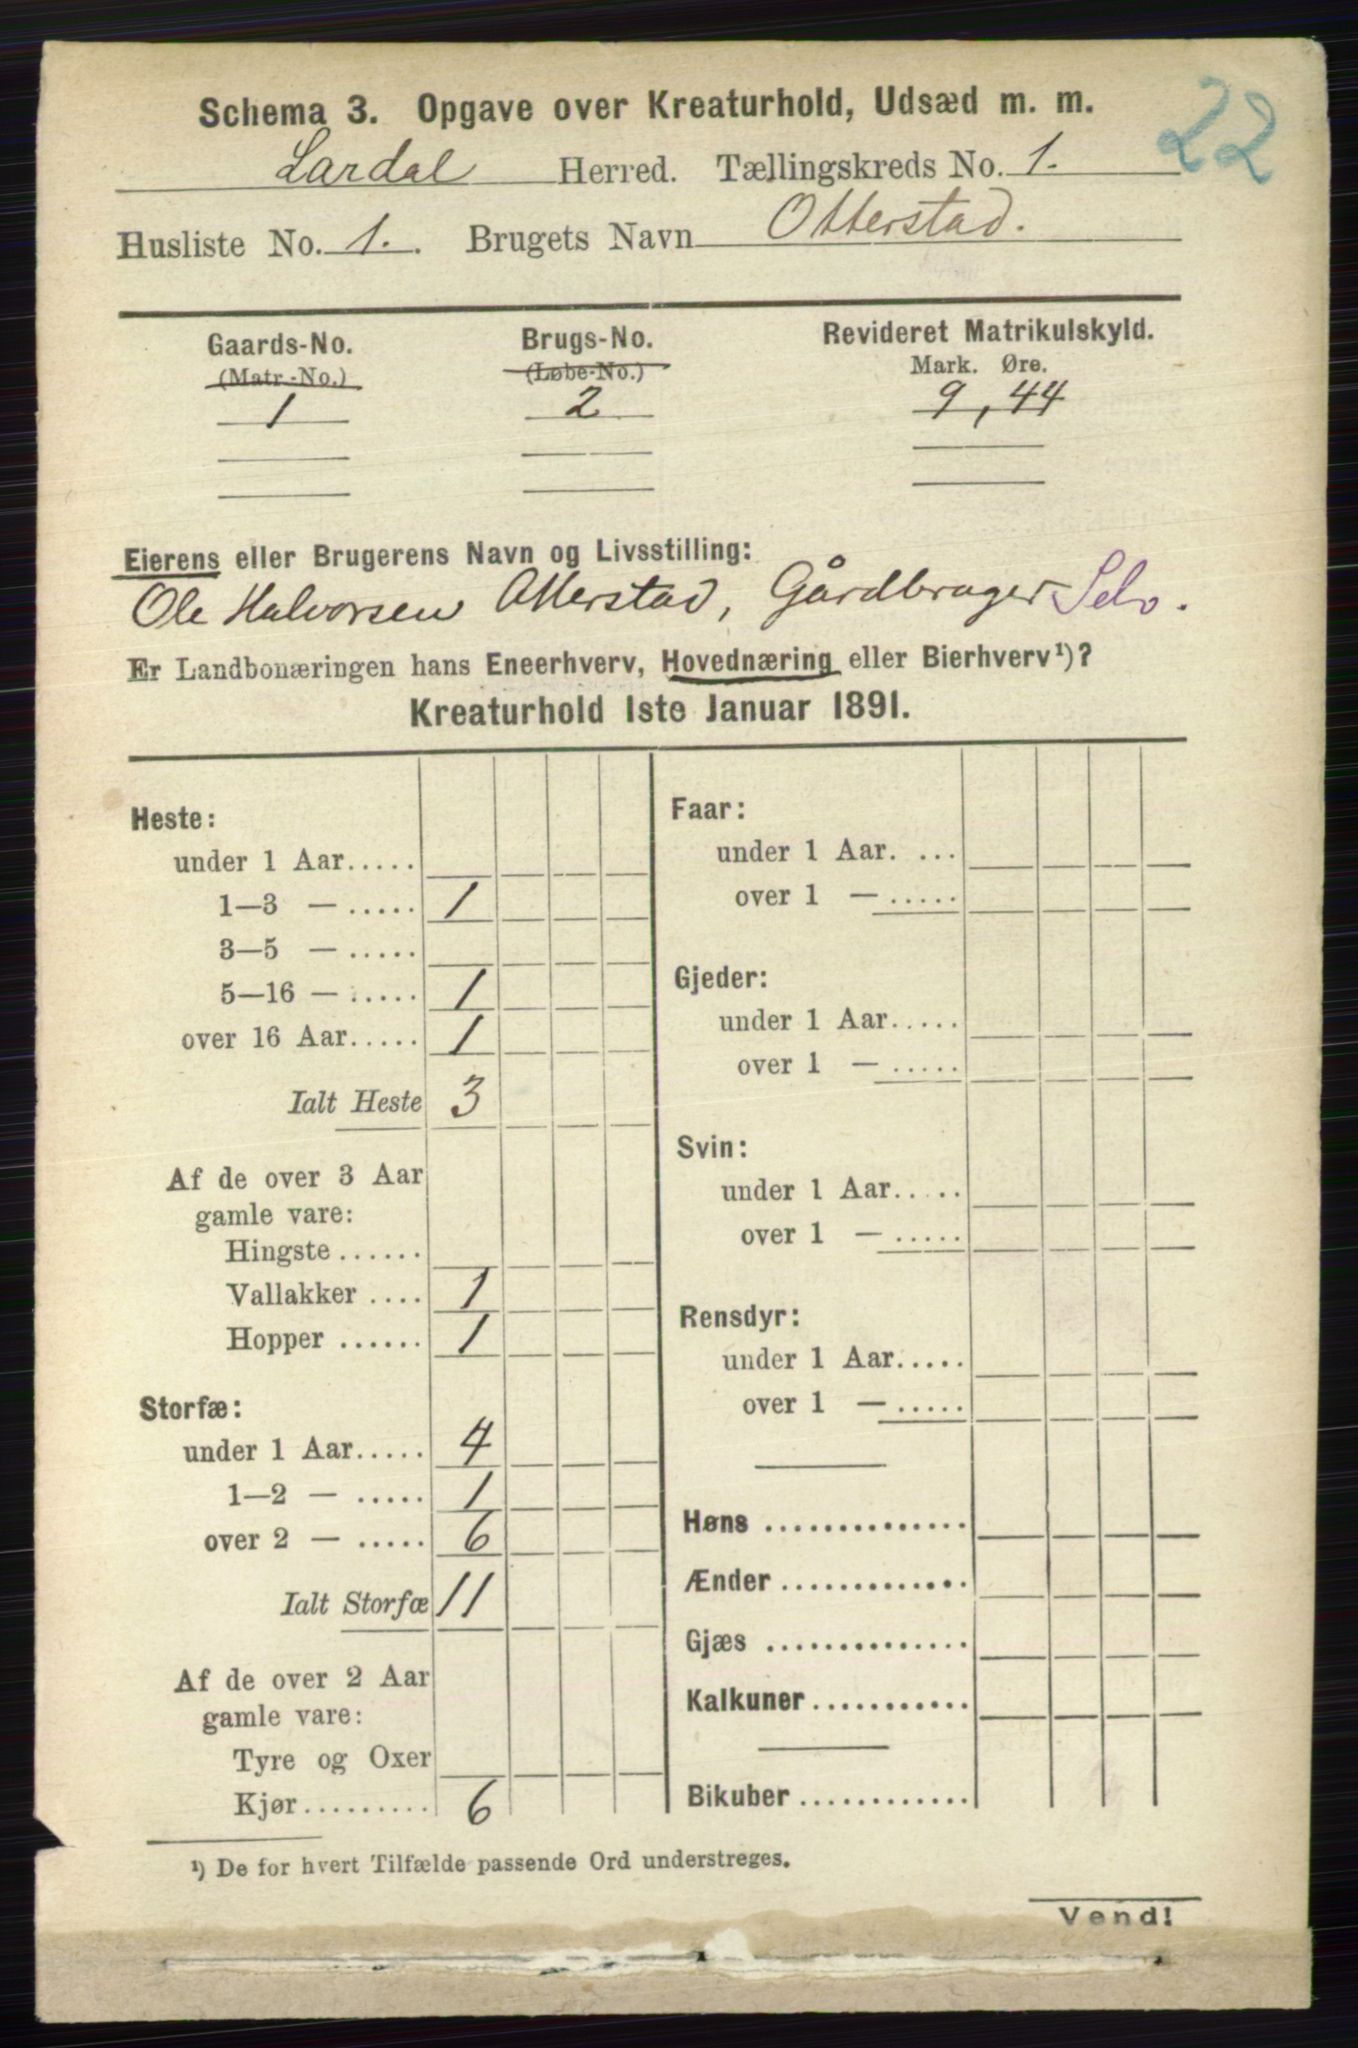 22
Schema 3. Opgave over Kreaturhold, Udsæd m. m.
Lardal Herred. Tællingskreds No. 1.
Husliste No. 1. Brugets Navn Otterstad.
Gaards-No. Brugs-No. Revideret Matrikulskyld.
(Matr.-No.) (Løbe-No.) Mark. Øre.
1 2 9,44
Eierens eller Brugerens Navn og Livsstilling:
Ole Halvorsen Otterstad, Gårdbruger Selv.
Er Landbonæringen hans Eneerhverv, Hovednæring eller Bierhverv¹)?
Kreaturhold 1ste Januar 1891.
Heste:
under 1 Aar.....
1—3 — ..... 1
3—5 — .....
5—16 — ..... 1
over 16 Aar..... 1
Ialt Heste 3
Af de over 3 Aar
gamle vare:
Hingste ......
Vallakker .... 1
Hopper ...... 1
Storfæ:
under 1 Aar..... 4
1—2 — ..... 1
over 2 — ..... 6
Ialt Storfæ 11
Af de over 2 Aar
gamle vare:
Tyre og Oxer
Kjør......... 6
Faar:
under 1 Aar. ...
over 1 — .....
Gjeder:
under 1 Aar.....
over 1 — .....
Svin:
under 1 Aar.....
over 1 — .....
Rensdyr:
under 1 Aar.....
over 1 — .....
Høns ..............
Ænder .............
Gjæs ..............
Kalkuner...........
Bikuber ............
¹) De for hvert Tilfælde passende Ord understreges.
Vend!